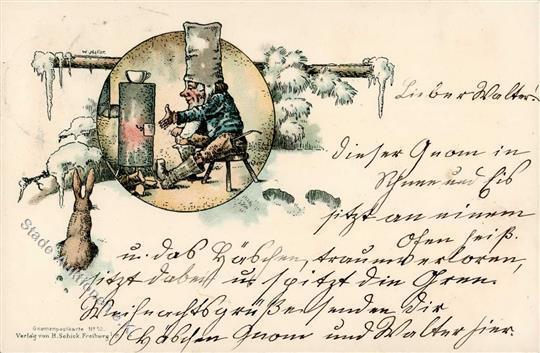 W. Müller
Lieber Walter!
dieser Gnom in
Schnee und Eis
sitzt an einem
Ofen heiß.
u. das Häschen, traumverloren,
sitzt dabei u. spitzt die Oren.
Weihnachtsgrüße senden dir
Häschen Gnom und Walter hier.
Gnomenpostkarte No 10.
Verlag von H. Schick. Freiburg